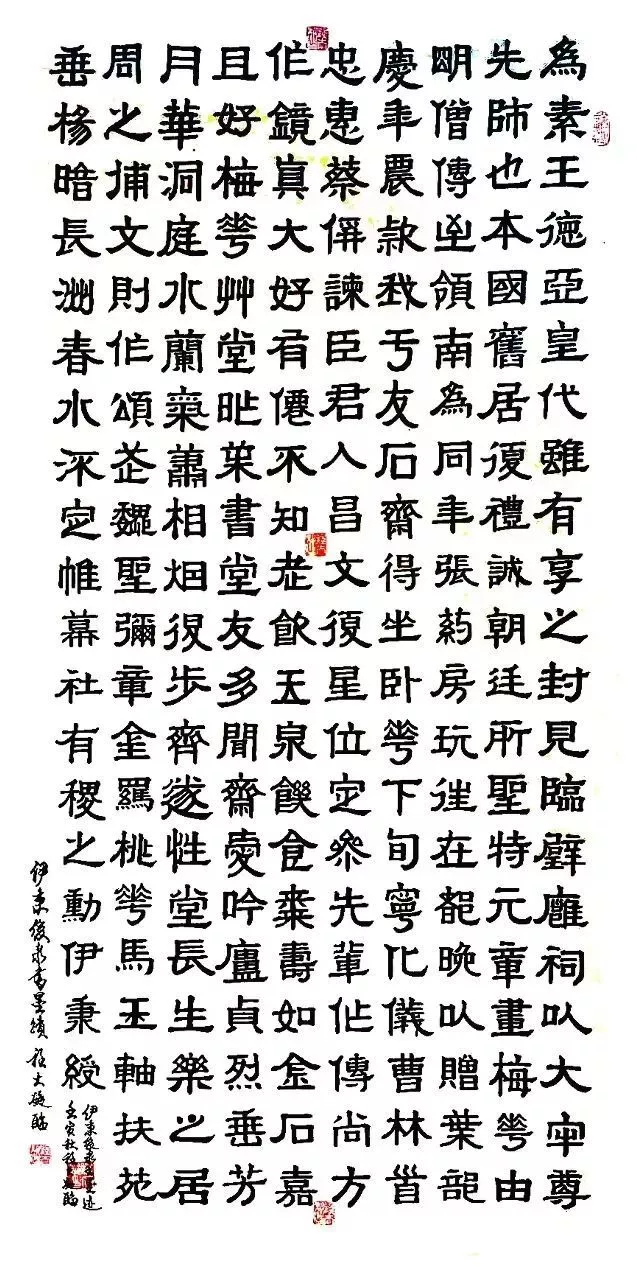 為素王德亞皇代雖有享之封見臨辟廱祠㠯大牢尊
先師也本國舊居復禮誠朝廷所聖特元章畫梅華由
明僧傳至領南為同年張葯房玩徃在都晚㠯贈葉龍
慶年農款我于友石齋得坐卧華下旬寧化儀曹林首
忠惠蔡侔諫臣君人昌文復星位定參先輩作傳尚方
作鏡真大好有僊不知老飲玉泉饑食棗壽如金石嘉
且好梅華艸堂昨葉書堂友多聞齋愛吟廬貞烈垂芳
月華洞庭水蘭氣蕭相烟復步齊遂性堂長生樂之居
周之捕文則作頌芒魏聖彌章金羈桃華馬玉軸扶苑
垂楊暗長洲春水深定帷幕社有稷之勳伊秉綬
伊秉綬墨迹
壬寅秋臨
伊秉綬書墨蹟程大臨